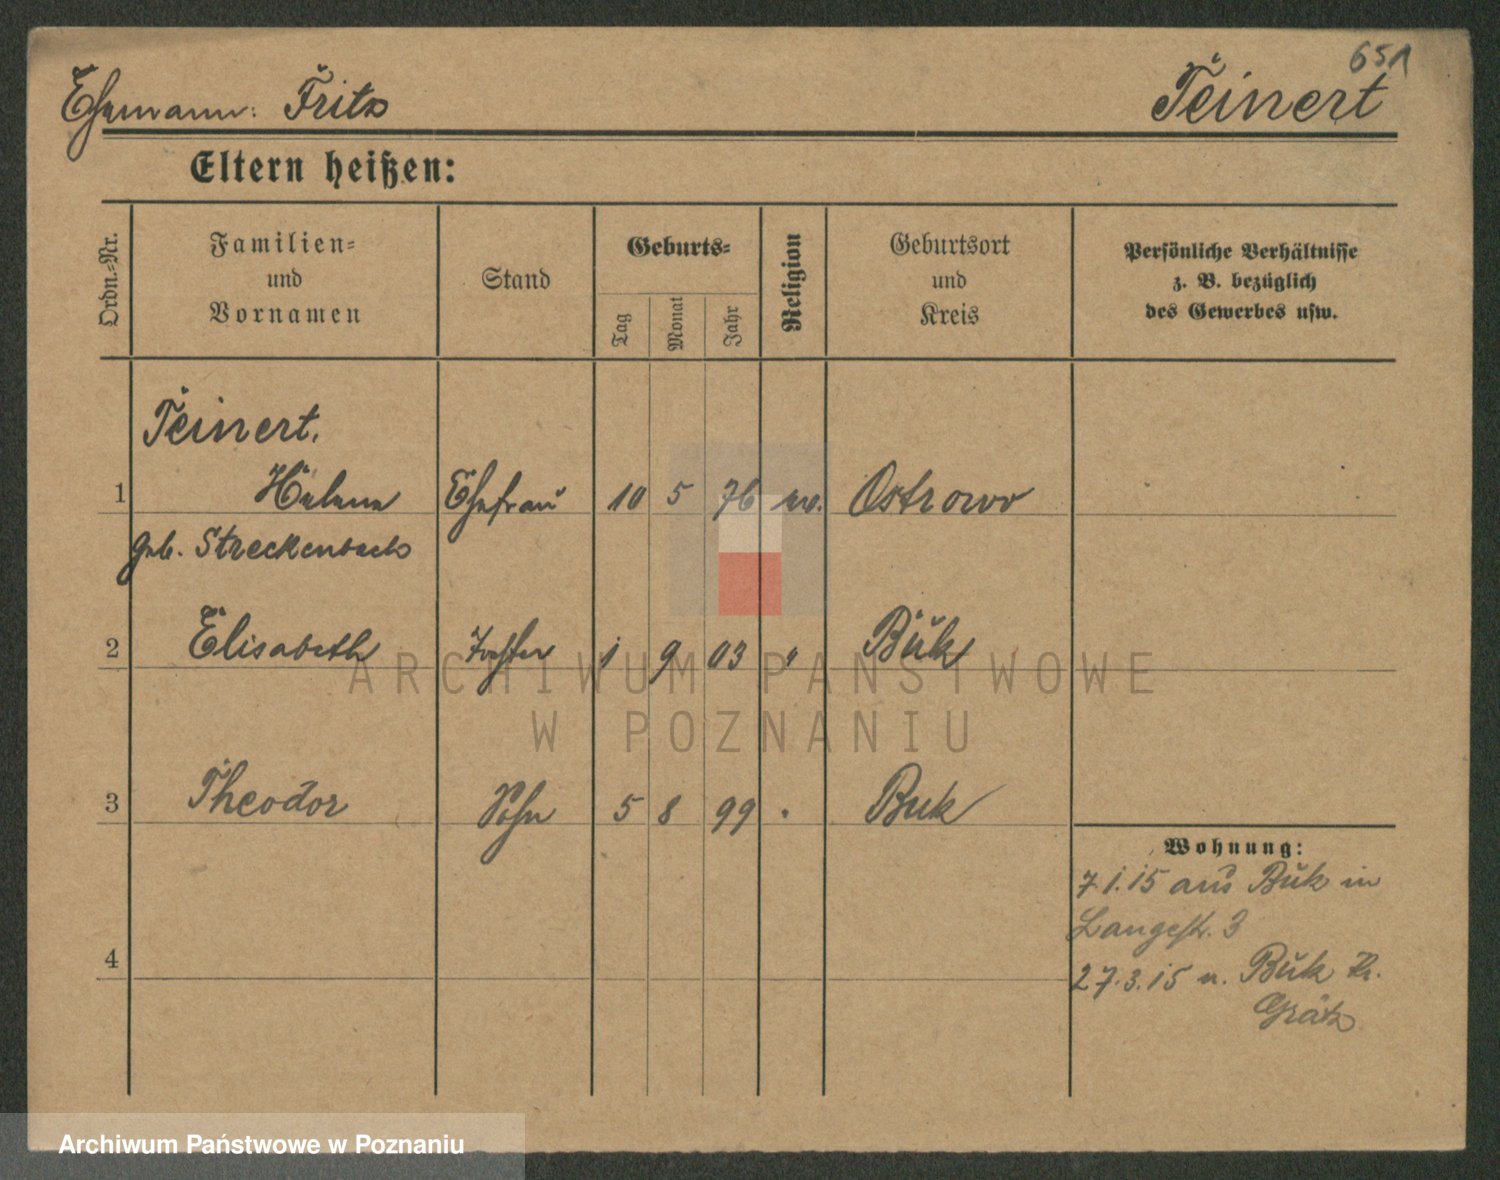 651
Ehemann: Fritz Teinert
Eltern heißen:
Ordn.-Nr.
Familien-
und
Vornamen
Stand
Geburts-
Tag
Monat
Jahr
Religion
Geburtsort
und
Kreis
Persönliche Verhältnisse
z. B. bezüglich
des Gewerbes usw.
Teinert,
1 Helene Ehefrau 10 5 76 ev. Ostrowo
geb. Streckenbach
2 Elisabeth Tochter 1 9 03 " Buk
3 Theodor Sohn 5 8 99 " Buk
4
Wohnung:
7 1. 15 aus Buk in
Langestr. 3
27. 3. 15 n. Buk Kr.
Grätz
ARCHIWUM PAŃSTWOWE
W POZNANIU
Archiwum Państwowe w Poznaniu